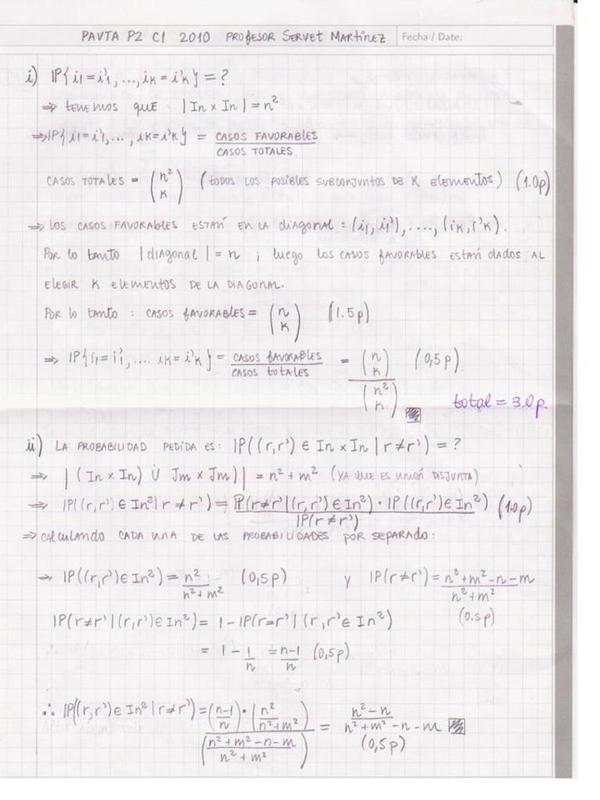 PAUTA P2 C1 2010 PROFESOR SERVET MARTÍNEZ Fecha / Date:
i) IP{i1=i'1, ..., iK=i'K} = ?
⇒ TENEMOS QUE |In x In| = n²
⇒ IP{i1=i'1, ..., iK=i'K} = CASOS FAVORABLES / CASOS TOTALES
CASOS TOTALES = (n² K) (TODOS LOS POSIBLES SUBCONJUNTOS DE K ELEMENTOS) (1.0p)
⇒ LOS CASOS FAVORABLES ESTÁN EN LA DIAGONAL: (i1, i1'), ...., (iK, i'K).
Por lo tanto |diagonal| = n ; luego LOS CASOS FAVORABLES ESTÁN DADOS AL
ELEGIR K ELEMENTOS DE LA DIAGONAL.
Por lo tanto : CASOS FAVORABLES = (n K) (1.5p)
⇒ IP{i1=i'1, .... iK=i'K} = CASOS FAVORABLES / CASOS TOTALES = (n K) / (n² K) (0,5p)
total = 3.0p.
ii) LA PROBABILIDAD PEDIDA ES: IP((r,r') ∈ In x In | r≠r') = ?
⇒ |(In x In) ∪ (Jm x Jm)| = n²+m² (YA QUE ES UNIÓN DISJUNTA)
⇒ IP((r,r') ∈ In² | r≠r') = IP(r≠r' | (r,r') ∈ In²) · IP((r,r') ∈ In²) / IP(r≠r') (1.0p)
⇒ CALCULANDO CADA UNA DE LAS PROBABILIDADES POR SEPARADO:
⇒ IP((r,r') ∈ In²) = n² / n²+m² (0,5p) y IP(r≠r') = n²+m²-n-m / n²+m²
(0.5p)
IP(r≠r' | (r,r') ∈ In²) = 1 - IP(r=r' | (r,r' ∈ In²)
= 1 - 1/n = n-1/n (0,5p)
∴ IP((r,r') ∈ In² | r≠r') = (n-1/n) · (n²/n²+m²) / (n²+m²-n-m / n²+m²) = n²-n / n²+m²-n-m
(0,5p)